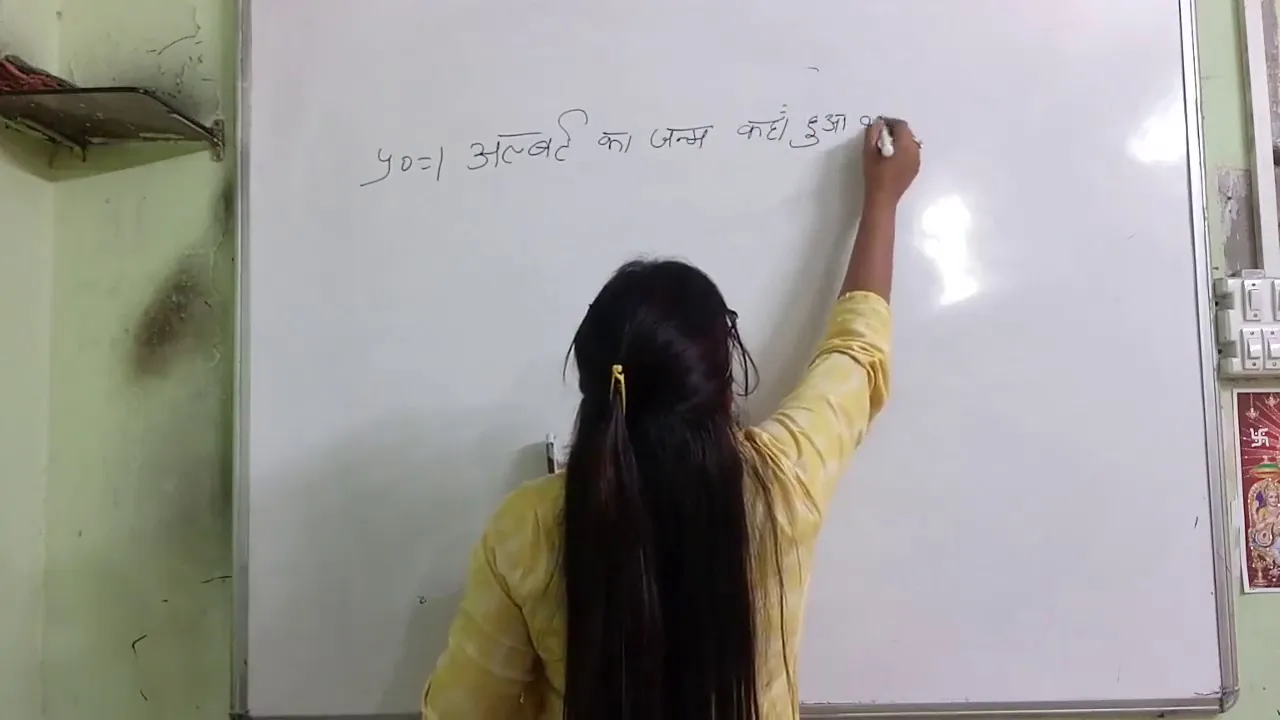 प्र०=1 अल्बर्ट का जन्म कहाँ हुआ